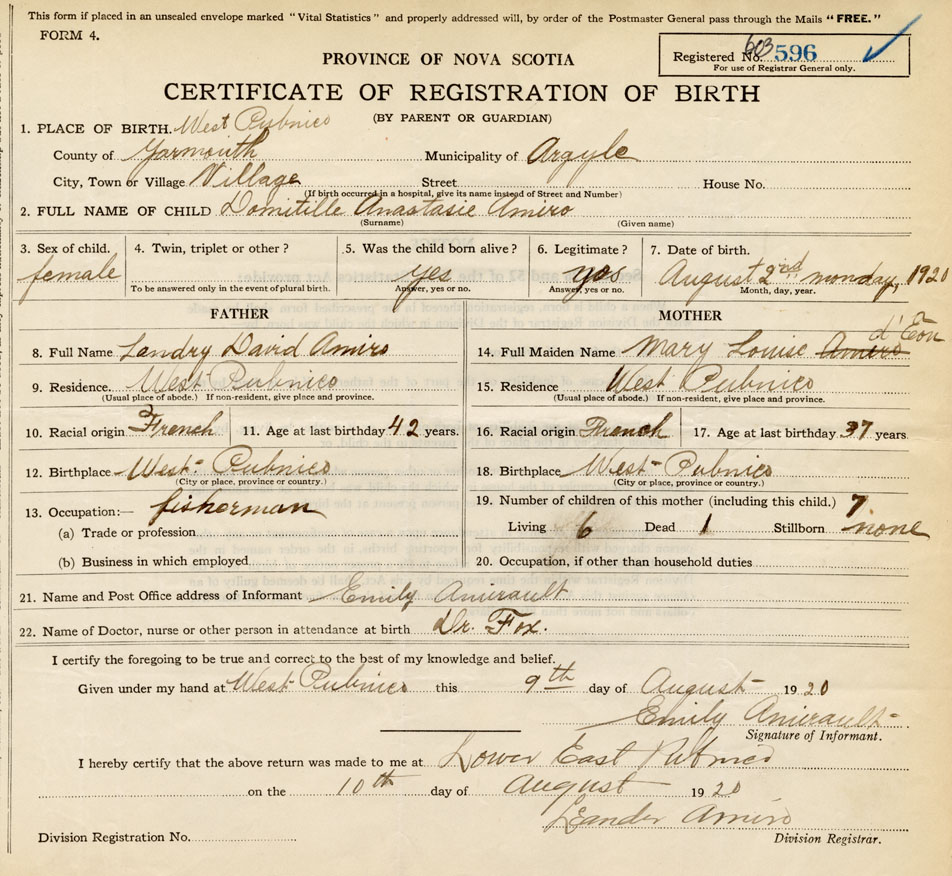 This form if placed in an unsealed envelope marked "Vital Statistics" and properly addressed will, by order of the Postmaster General pass through the Mails "FREE."
FORM 4.
Registered No. 603 596
For use of Registrar General only.
PROVINCE OF NOVA SCOTIA
CERTIFICATE OF REGISTRATION OF BIRTH
(BY PARENT OR GUARDIAN)
1. PLACE OF BIRTH. West Pubnico
County of Yarmouth Municipality of Argyle
City, Town or Village Village Street House No.
(If birth occurred in a hospital, give its name instead of Street and Number)
2. FULL NAME OF CHILD Domitille Anastasie Amiro
(Surname) (Given name)
3. Sex of child. 4. Twin, triplet or other? 5. Was the child born alive? 6. Legitimate? 7. Date of birth.
female yes yes August 2nd monday, 1920
To be answered only in the event of plural birth. Answer, yes or no. Answer, yes or no. Month, day, year.
FATHER MOTHER
d'Eon
8. Full Name Landry David Amiro 14. Full Maiden Name Mary Louise Amiro
9. Residence. West Pubnico 15. Residence West Pubnico
(Usual place of abode.) If non-resident, give place and province. (Usual place of abode.) If non-resident, give place and province.
10. Racial origin French 11. Age at last birthday 42 years. 16. Racial origin French 17. Age at last birthday 37 years.
12. Birthplace West Pubnico 18. Birthplace West Pubnico
(City or place, province or country.) (City or place, province or country.)
13. Occupation:— fisherman 19. Number of children of this mother (including this child.) 7
(a) Trade or profession Living 6 Dead 1 Stillborn none
(b) Business in which employed 20. Occupation, if other than household duties
21. Name and Post Office address of Informant Emily Amirault
22. Name of Doctor, nurse or other person in attendance at birth Dr. Fox.
I certify the foregoing to be true and correct to the best of my knowledge and belief.
Given under my hand at West Pubnico this 9th day of August 1920
Emily Amirault
Signature of Informant.
I hereby certify that the above return was made to me at Lower East Pubnico
on the 10th day of August 1920
Leander Amiro
Division Registration No. Division Registrar.